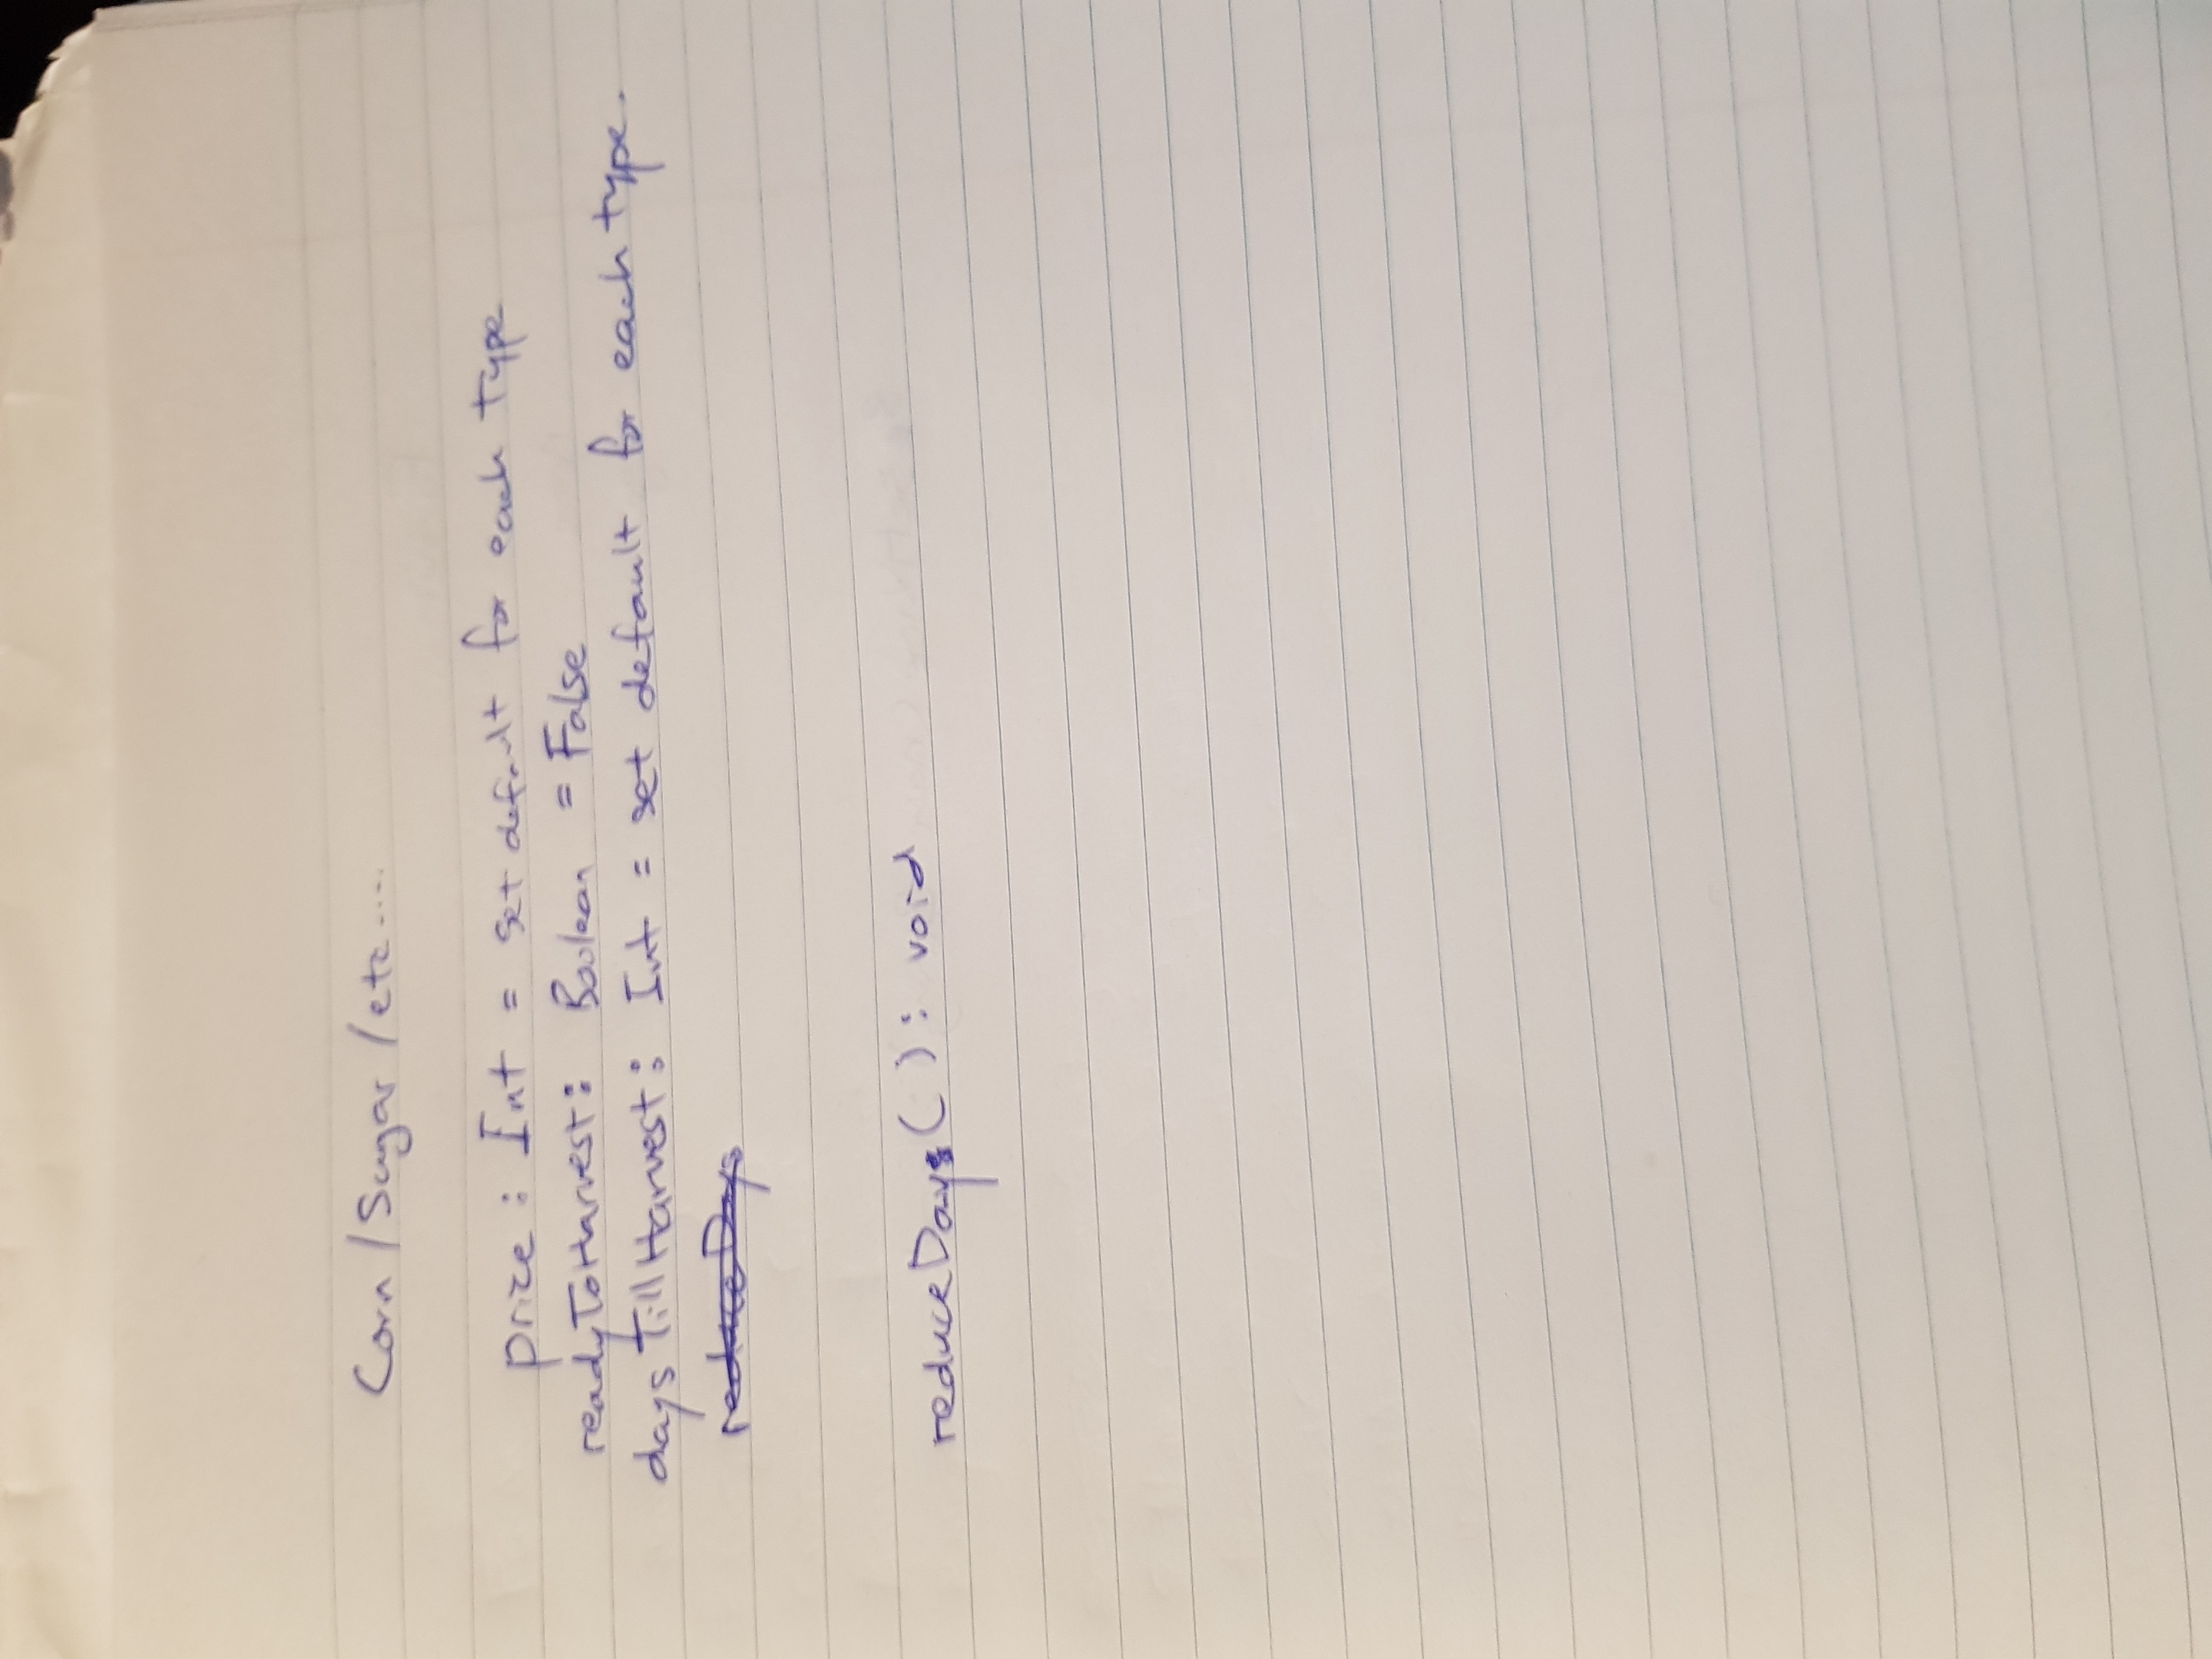 Corn / Sugar / etc....
price : Int = set default for each type
readyToHarvest: Boolean = False
daysTillHarvest: Int = set default for each type.
reduceDays
reduceDays( ): void